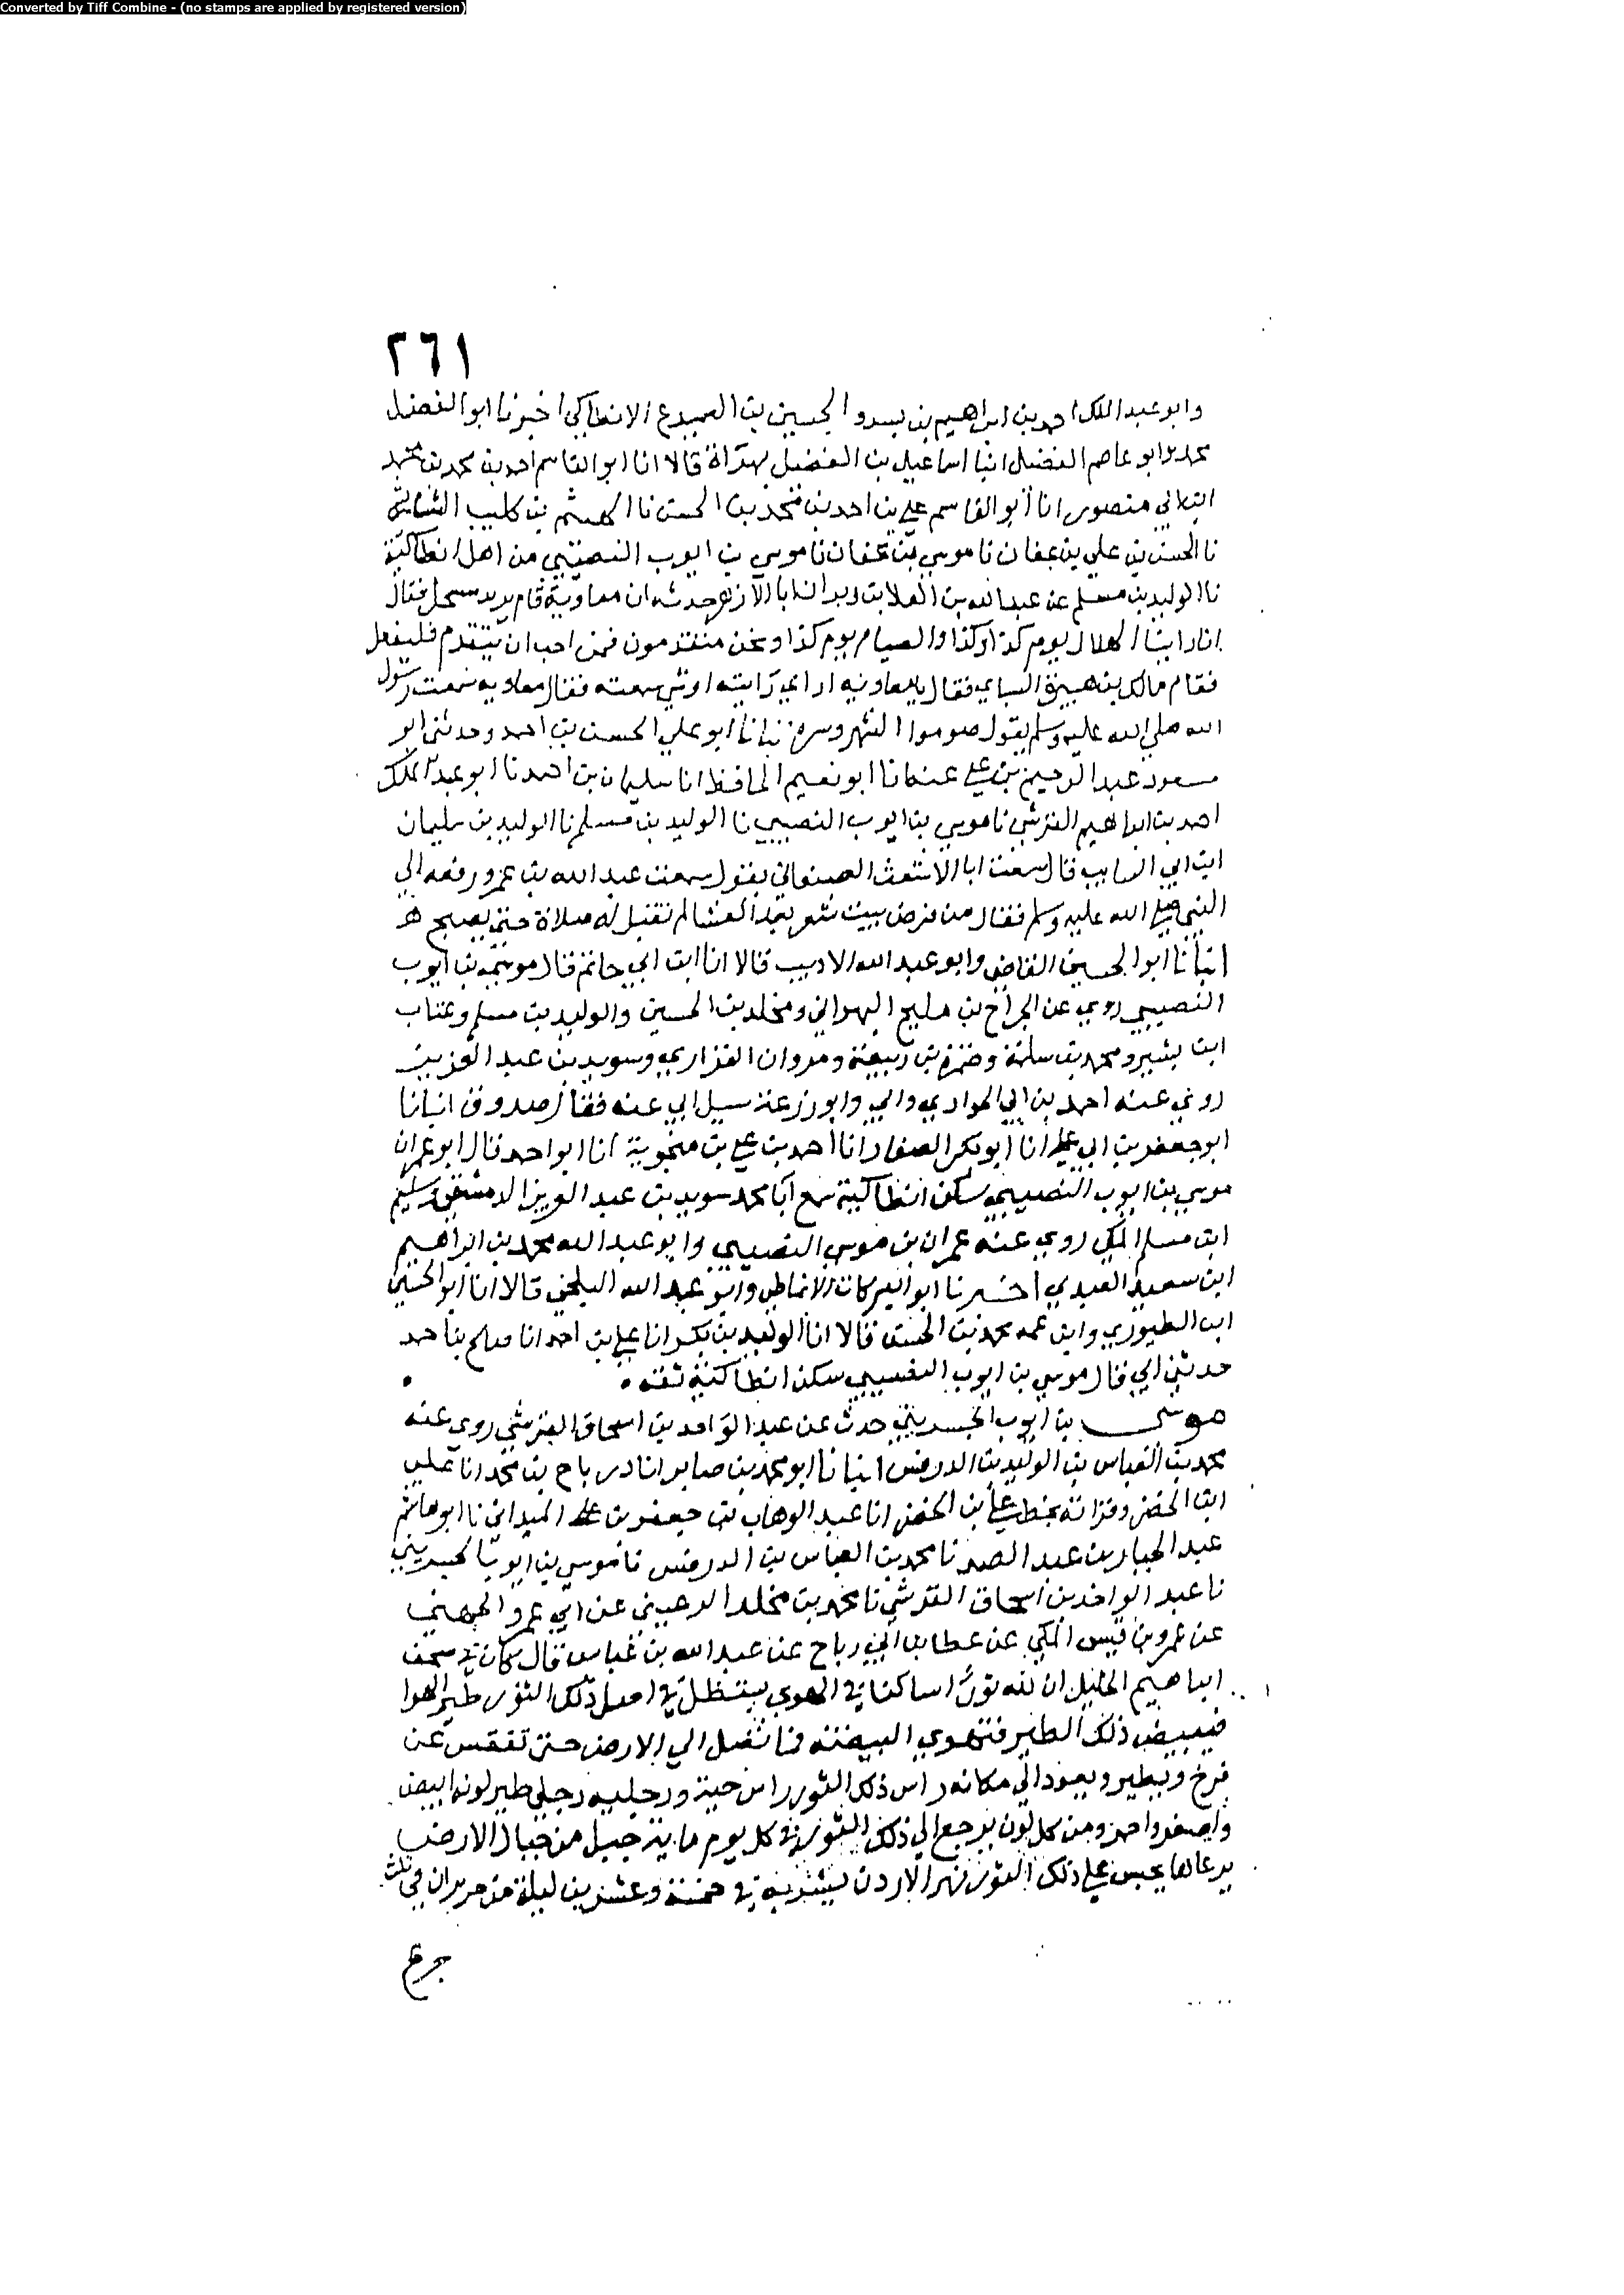 Converted by Tiff Combine - (no stamps are applied by registered version)
٢٦١
وابو عبد الملك احمد بن ابراهيم بن بسر والحسين بن السميدع الانطاكي اخبرنا ابو الفضل
محمد وابو عاصم الفضل انبا اسماعيل بن الفضل بهراة قالا انا ابو القاسم احمد بن محمد بن محمد
منصور انا ابو القاسم علي بن احمد بن محمد بن الحسن نا الهيثم بن كليب الشاشي
نا الحسن بن علي بن عفان نا موسي بن عفان نا موسي بن ايوب النصيبي من اهل انطاكية
نا الوليد بن مسلم عن عبد الله بن العلا بن زبر ان ابا الازهر حدثه ان معاوية قام بدير مسحل فقال
انا راينا الهلال يوم كذا وكذا والصيام يوم كذا ونحن متقدمون فمن احب ان يتقدم فليفعل
فقام مالك بن هبيرة السباي فقال يا معاوية اراي رايته او شي سمعته فقال معاوية سمعت رسول
الله صلي الله عليه وسلم يقول صوموا الشهر وسره انبانا ابو علي الحسن بن احمد وحدثني ابو
مسعود عبد الرحيم بن علي عنه انا ابو نعيم الحافظ انا سليمان بن احمد نا ابو عبد الملك
احمد بن ابراهيم القرشي نا موسي بن ايوب النصيبي نا الوليد بن مسلم نا الوليد بن سليمان
ابن ابي السايب قال سمعت ابا الاشعث الصنعاني يقول سمعت عبد الله بن عمرو رفعه الي
النبي صلي الله عليه وسلم فقال من قرض بيت شعر بعد العشا لم تقبل له صلاة حتي يصبح
انبانا ابو الحسين القاضي وابو عبد الله الاديب قالا انا ابن ابي حاتم قال موسي بن ايوب
النصيبي روي عن الجراح بن مليح البهراني ومخلد بن الحسين والوليد بن مسلم وعتاب
ابن بشير ومحمد بن سلمة وضمرة بن ربيعة ومروان الفزاري وسويد بن عبد العزيز
روي عنه احمد بن ابي الحواري وابي وابو زرعة سيل ابي عنه فقال صدوق انبانا
ابو جعفر بن ابي علي انا ابو بكر الصفار انا احمد بن علي بن منجوية انا ابو احمد قال ابو عمران
موسي بن ايوب النصيبي سكن انطاكية سمع ابا محمد سويد بن عبد العزيز الدمشقي وسليم
ابن مسلم المكي روي عنه عمران بن موسي النصيبي وابو عبد الله محمد بن ابراهيم
ابن سعيد العبدي اخبرنا ابو البركات الانماطي وابو عبد الله البلخي قالا انا ابو الحسين
ابن الطيوري وابن عمه محمد بن الحسن قالا انا الوليد بن بكر انا علي بن احمد انا صالح بن احمد
حدثني ابي قال موسي بن ايوب النصيبي سكن انطاكية ثقة
موسى بن ايوب الجسريني حدث عن عبد الواحد بن اسحاق القرشي روي عنه
محمد بن العباس بن الوليد بن الدرفس انبانا ابو محمد بن صابر انا درباح بن محمد انا علي
ابن الخضر وقراته بخط علي بن الخضر انا عبد الوهاب بن جعفر بن علي الميداني نا ابو هاشم
عبد الجبار بن عبد الصمد نا محمد بن العباس بن الدرفس نا موسي بن ايوب الجسريني
نا عبد الواحد بن اسحاق القرشي نا محمد بن مخلد الرعيني عن ابي عمر الجهني
عن عمرو بن قيس المكي عن عطا بن ابي رباح عن عبد الله بن عباس قال كان في صحف
ابراهيم الخليل ان لله ثورا ساكنا في الهوي يستظل في اصل ذلك الثور طير الهوا
فيبيض ذلك الطير فتهوي البيضة فما تصل الي الارض حتي تفقس عن
فرخ ويطير ويعود الي مكانه راس ذلك الثور راس حية ورجليه رجلي طير لونه ابيض
واصفر واحمر ومن كل لون يرجع الي ذلك الثور في كل يوم ماية جبل من جبال الارض
يرعاها يحبس علي ذلك الثور نهر الاردن يشربه في خمسة وعشرين ليلة من حزيران في ثلث
جرع